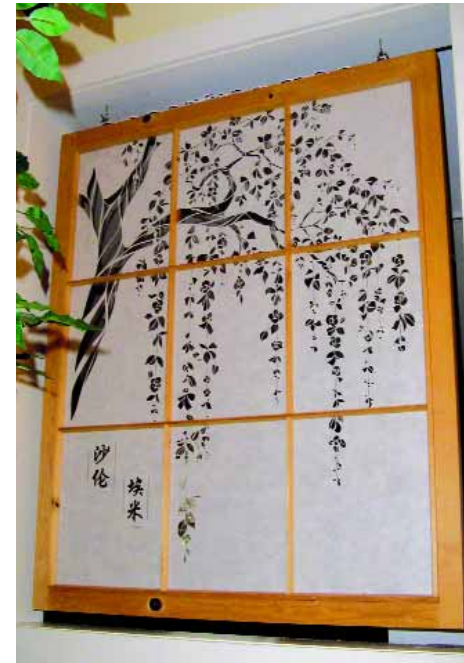 沙伦
埃米